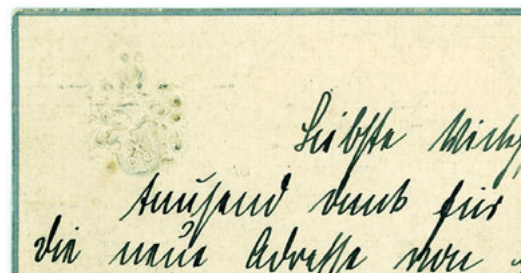 Liebste
tausend dank für
die neue Adresse von